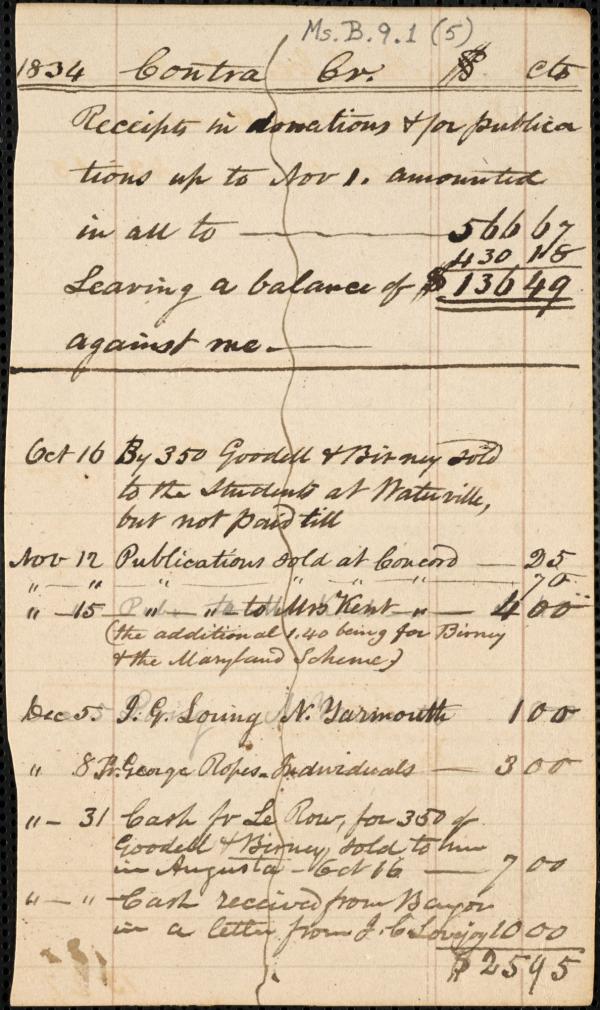 Ms. B. 9. 1 (5)
1834 Contra Cr. $ cts
Receipts in donations & for publica
tions up to Nov 1. amounted
in all to — 566 67
430 18
Leaving a balance of $ 136 49
against me. —
Oct 16 By 350 Goodell & Birney sold
to the Students at Waterville,
but not paid till
Nov 12 Publications sold at Concord — 25
" — " — " — " — " — 70
" — 15 " — " to Mrs Kent — " — 4 00
(the additional 1.40 being for Birney
& the Maryland Scheme)
Dec 5. I. G. Loring N. Yarmouth 1 00
" 8 George Ropes — Individuals — 3 00
" — 31 Cash fr Le Row, for 350 of
Goodell & Birney, sold to him
in Augusta — Oct 16 — 7 00
" — " — Cash received from Bangor
in a letter from J. C. Lovejoy 10 00
$ 25 95